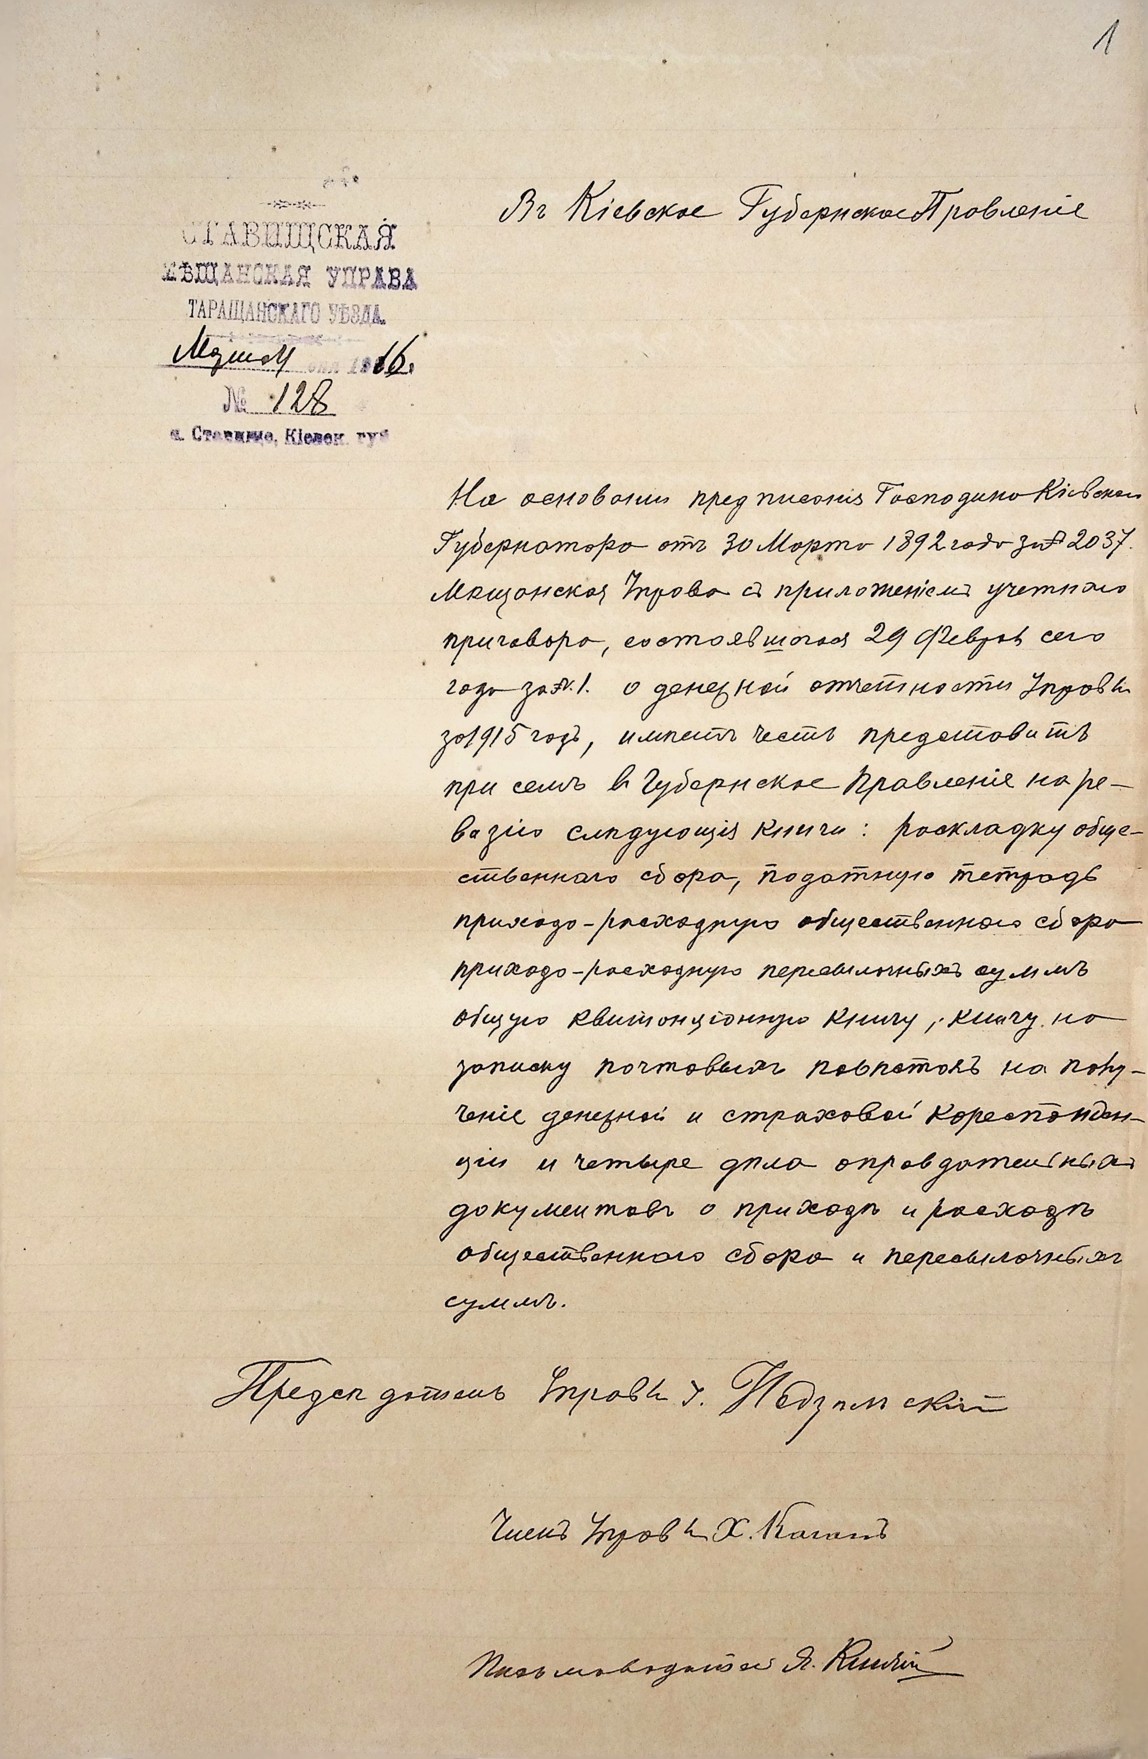 1
Въ Кіевское Губернское Правленіе
СТАВИЩСКАЯ
МѢЩАНСКАЯ УПРАВА
ТАРАЩАНСКАГО УѢЗДА.
дня 1916.
№ 128
м. Ставище, Кіевск. губ
На основаніи предписанія Господина Кіевскаго
Губернатора отъ 30 Марта 1892 года за № 2037.
Мещанская Управа съ приложеніемъ учетнаго
приговора, состоявшагося 29 Февраля сего
года за № 1. о денежной отчетности Управы
за 1915 годъ, имѣетъ честь представить
при семъ въ Губернское Правленіе на ре-
визію слѣдующія книги: раскладку обще-
ственнаго сбора, податную тетрадь
приходо-расходную общественнаго сбора
приходо-расходную пересылочныхъ суммъ
общую квитанціонную книгу, книгу на
записку почтовыхъ повѣстокъ на полу-
ченіе денежной и страховой кореспонден-
ціи и четыре дѣла оправдательныхъ
документовъ о приходѣ и расходѣ
общественнаго сбора и пересылочныхъ
суммъ.
Председатель Управы
Членъ Управы Х. Каганъ
Письмоводитель Я.